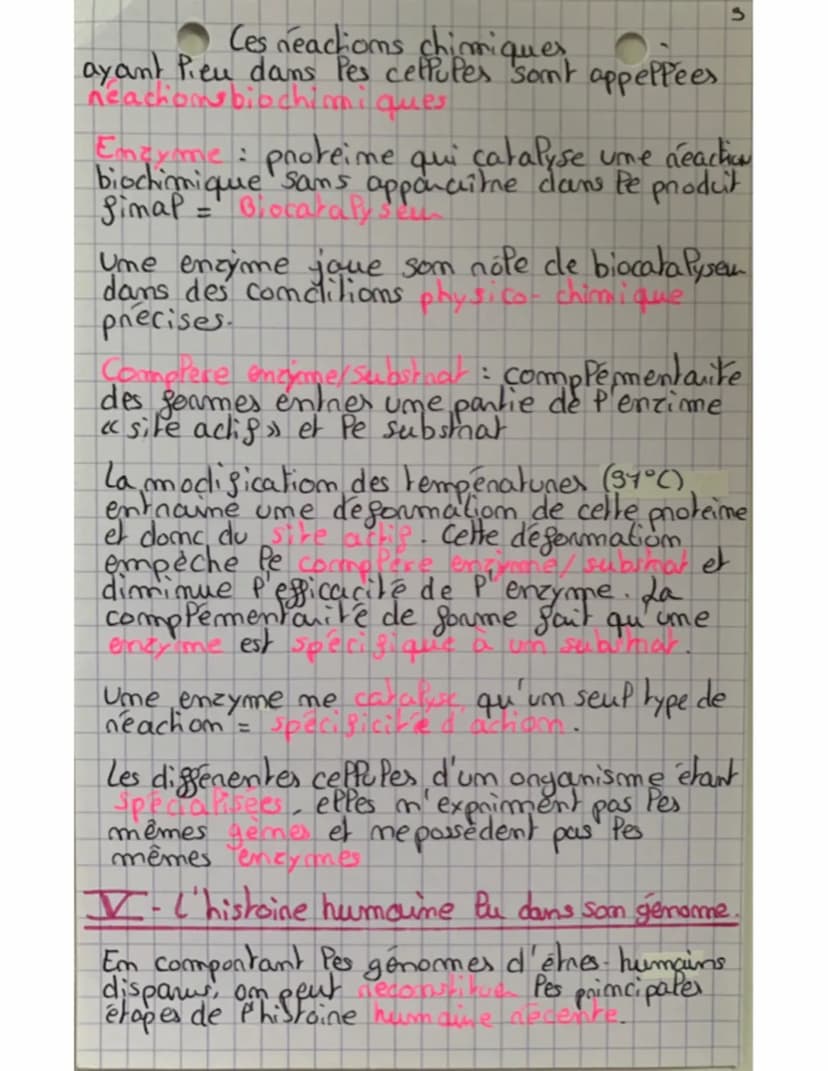 3
Ces réactions chimiques
ayant lieu dans les cellules sont appellées
réactions biochimiques
Enzyme : proteine qui catalyse une réaction
biochimique sans apparaître dans le produit
final = Biocatalyseur
Une enzyme joue son rôle de biocatalyseur
dans des conditions physico-chimique
précises.
Complexe enzyme/substrat : complémentaite
des formes entres une partie de l'enzime
« site actif » et le substrat
La modification des températures (37°C)
entraine une déformation de cette proteine
et donc du site actif. Cette déformation
empèche le complexe enzyme/substrat et
diminue l'efficacité de l'enzyme. La
complémentarité de forme fait qu'une
enzyme est spécifique à un substrat.
Une enzyme ne catalyse qu'un seul type de
réaction = spécificité d'action.
Les différentes cellules d'un organisme étant
spécialisées, elles n'expriment pas les
mêmes gènes et ne possèdent pas les
mêmes enzymes
V - L'histoire humaine lu dans son génome.
En comportant les génomes d'êtres-humains
disparus, on peut reconstituer les principales
étapes de l'histoire humaine récente.